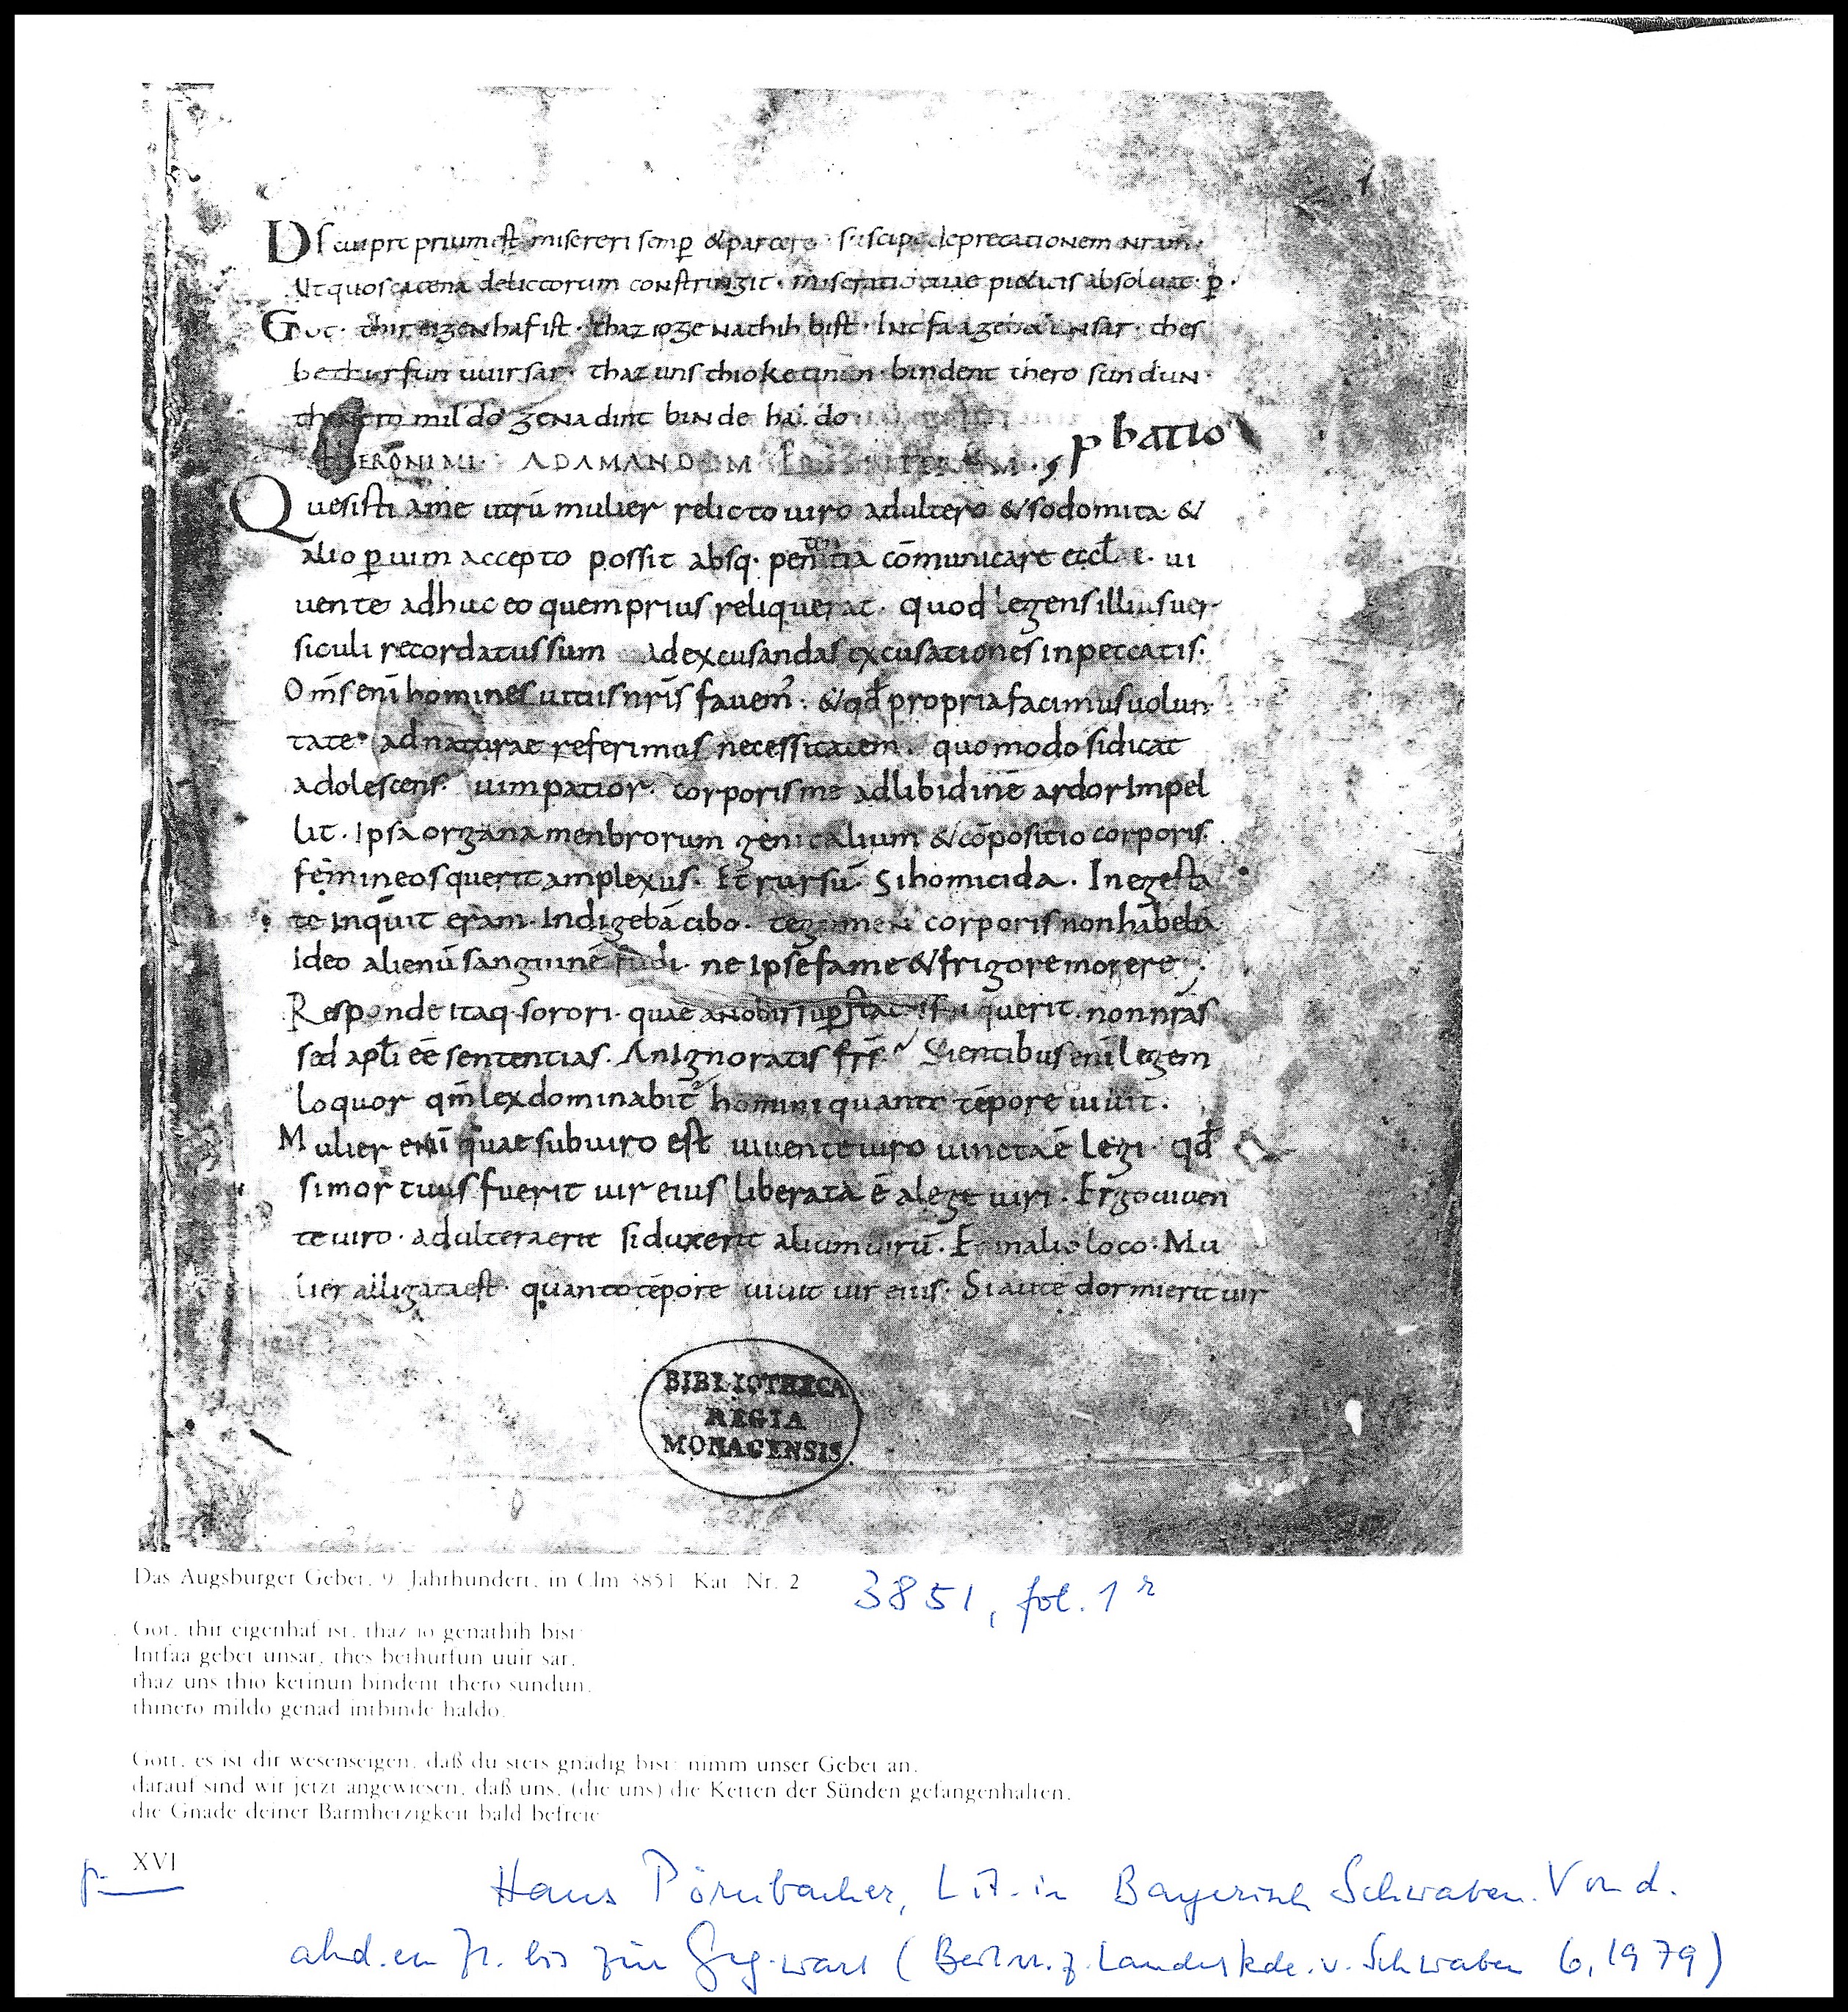 1
Ds cui proprium est misereri semp & parcere · suscipe deprecationem nram·
Ut quos catena delictorum constringit · miseratio tuae pietatis absoluat· p·
Got· thir eigenhaf ist· thaz io genathih bist· Intfaa gebet unsar· thes
bethurfun uuir sar· thaz uns thio ketinun bindent thero sundun·
thinero mildo genad intbinde haldo
pbatio
HIERONIMI· AD AMANDUM
Quesisti a me utrū mulier relicto uiro adultero & sodomita &
alio p uim accepto possit absq· penitentia cōmunicare eccl ae· ui
uente adhuc eo quem prius reliquerat· quod legens illius uer
siculi recordatus sum ad excusandas excusationes in peccatis·
Om̄s enī homines uitiis nr̄is fauem· & qđ propria facimus uolun
tate· ad naturae referimus necessitatem· quomodo si dicat
adolescens· uim patior· corporis me ad libidinē ardor Impel
lit· Ipsa organa menbrorum genitalium & cōpositio corporis·
femineos querit amplexus· Et rursū· Si homicida· In egesta
te inquit eram· Indigebā cibo· tegumen corporis non habebā
Ideo alienū sanguinē fudi· ne Ipse fame & frigore morerer·
Responde Itaq· sorori· quae a nobis sup statu suo querit· non nr̄as
sed apłi eē sententias· An Ignoratis fr̄s· Scientibus enī legem
loquor qm̄ lex dominabit̄ homini quanto tēpore uiuit·
Mulier enī quae sub uiro est uiuente uiro uincta ē legi· qđ
si mortuus fuerit uir eius liberata ē a lege uiri· Ergo uiuen
te uiro· adultera erit si duxerit alium uirū· Et in alio loco· Mu
lier alligata est· quanto tēpore uiuit uir eius· Si autē dormierit uir
BIBLIOTHECA
REGIA
MONACENSIS.
Das Augsburger Gebet, 9. Jahrhundert, in Clm 3851 Kat. Nr. 2
3851, fol. 1 r
Got, thir eigenhaf ist, thaz io genathih bist:
Intfaa gebet unsar, thes bethurfun uuir sar,
thaz uns thio ketinun bindent thero sundun,
thinero mildo genad intbinde haldo.
Gott, es ist dir wesenseigen, daß du stets gnädig bist: nimm unser Gebet an,
darauf sind wir jetzt angewiesen, daß uns, (die uns) die Ketten der Sünden gefangenhalten,
die Gnade deiner Barmherzigkeit bald befreie
XVI
Hans Pörnbacher, Lit. in Bayerisch Schwaben. Von d.
ahd.en Zt. bis zur Geg.wart (Beitrr. z. Landeskde. v. Schwaben 6, 1979)